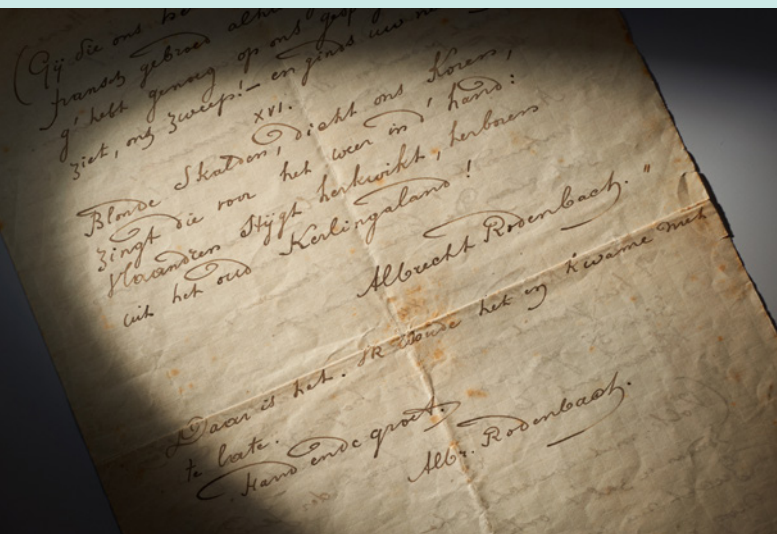 (Gij die ons
fransch gebroed
g' hebt genoeg op ons
ziet, ons zweep! — en ginds uw
XVI.
Blonde Skalden, dicht ons Koren,
zingt die voor het weer in d' hand:
Vlaandren stijgt herkwikt, herboren
uit het oud Kerlingaland!
Albrecht Rodenbach."
Daar is het. Ik woude het en kwame niet
te late.
Hand ende groet.
Albr. Rodenbach.